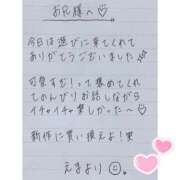 お兄様へ♡
今日は遊びに来てくれて
ありがとうございました
可愛すぎ!って褒めてくれて
てのんびりお話しながら
イチャイチャ楽しかった〜♡
新作に買い換えよ!
えまより